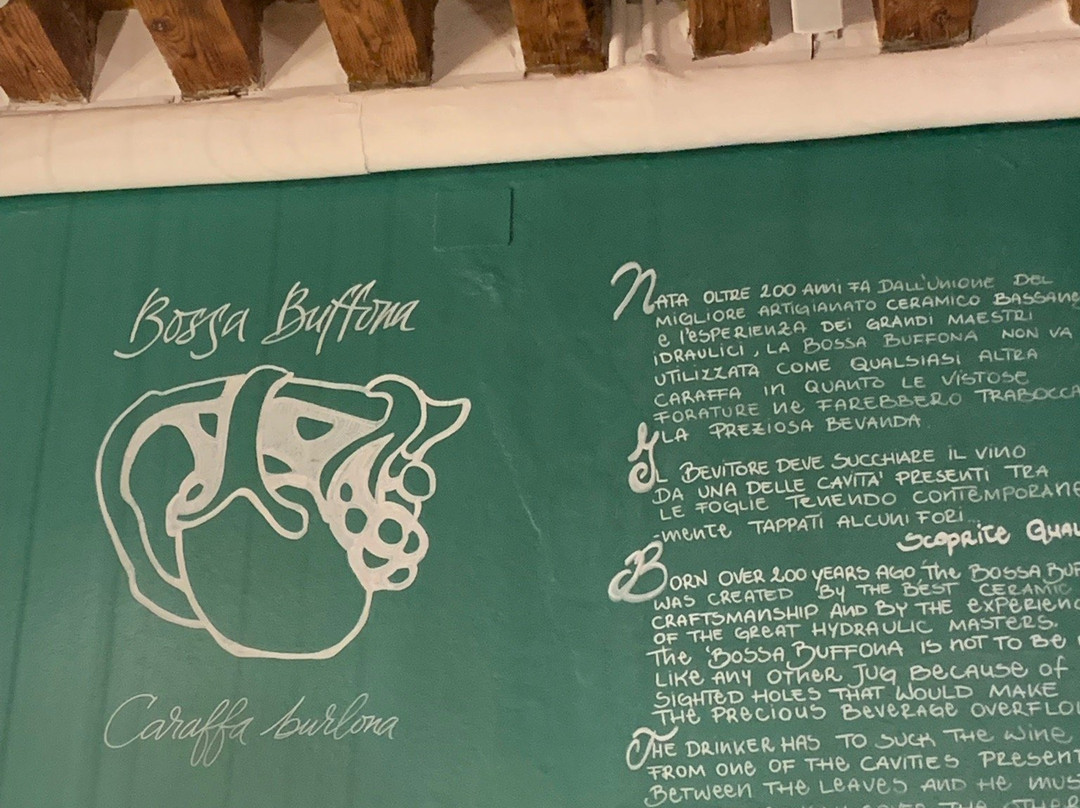 Bossa Buffona
Caraffa burlona
NATA OLTRE 200 ANNI FA DALL'UNIONE DEL
MIGLIORE ARTIGIANATO CERAMICO BASSANE
E L'ESPERIENZA DEI GRANDI MAESTRI
IDRAULICI, LA BOSSA BUFFONA NON VA
UTILIZZATA COME QUALSIASI ALTRA
CARAFFA IN QUANTO LE VISTOSE
FORATURE NE FAREBBERO TRABOCCA
LA PREZIOSA BEVANDA.
IL BEVITORE DEVE SUCCHIARE IL VINO
DA UNA DELLE CAVITA' PRESENTI TRA
LE FOGLIE TENENDO CONTEMPORANE
-MENTE TAPPATI ALCUNI FORI...
SCOPRITE QUAL
BORN OVER 200 YEARS AGO, THE BOSSA BUF
WAS CREATED BY THE BEST CERAMIC
CRAFTSMANSHIP AND BY THE EXPERIENC
OF THE GREAT HYDRAULIC MASTERS.
THE BOSSA BUFFONA IS NOT TO BE
LIKE ANY OTHER JUG BECAUSE OF
SIGHTED HOLES THAT WOULD MAKE
THE PRECIOUS BEVERAGE OVERFLO
THE DRINKER HAS TO SUCK THE WINE
FROM ONE OF THE CAVITIES PRESENT
BETWEEN THE LEAVES AND HE MUS